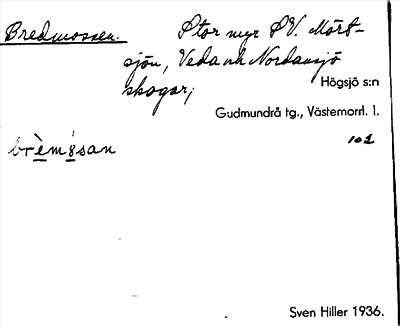 Bredmossen. Stor myr SV. Mört-
sjön, Veda och Nordansjö
skogar;
Högsjö s:n
Gudmundrå tg., Västernorrl. l.
102
Sven Hiller 1936.